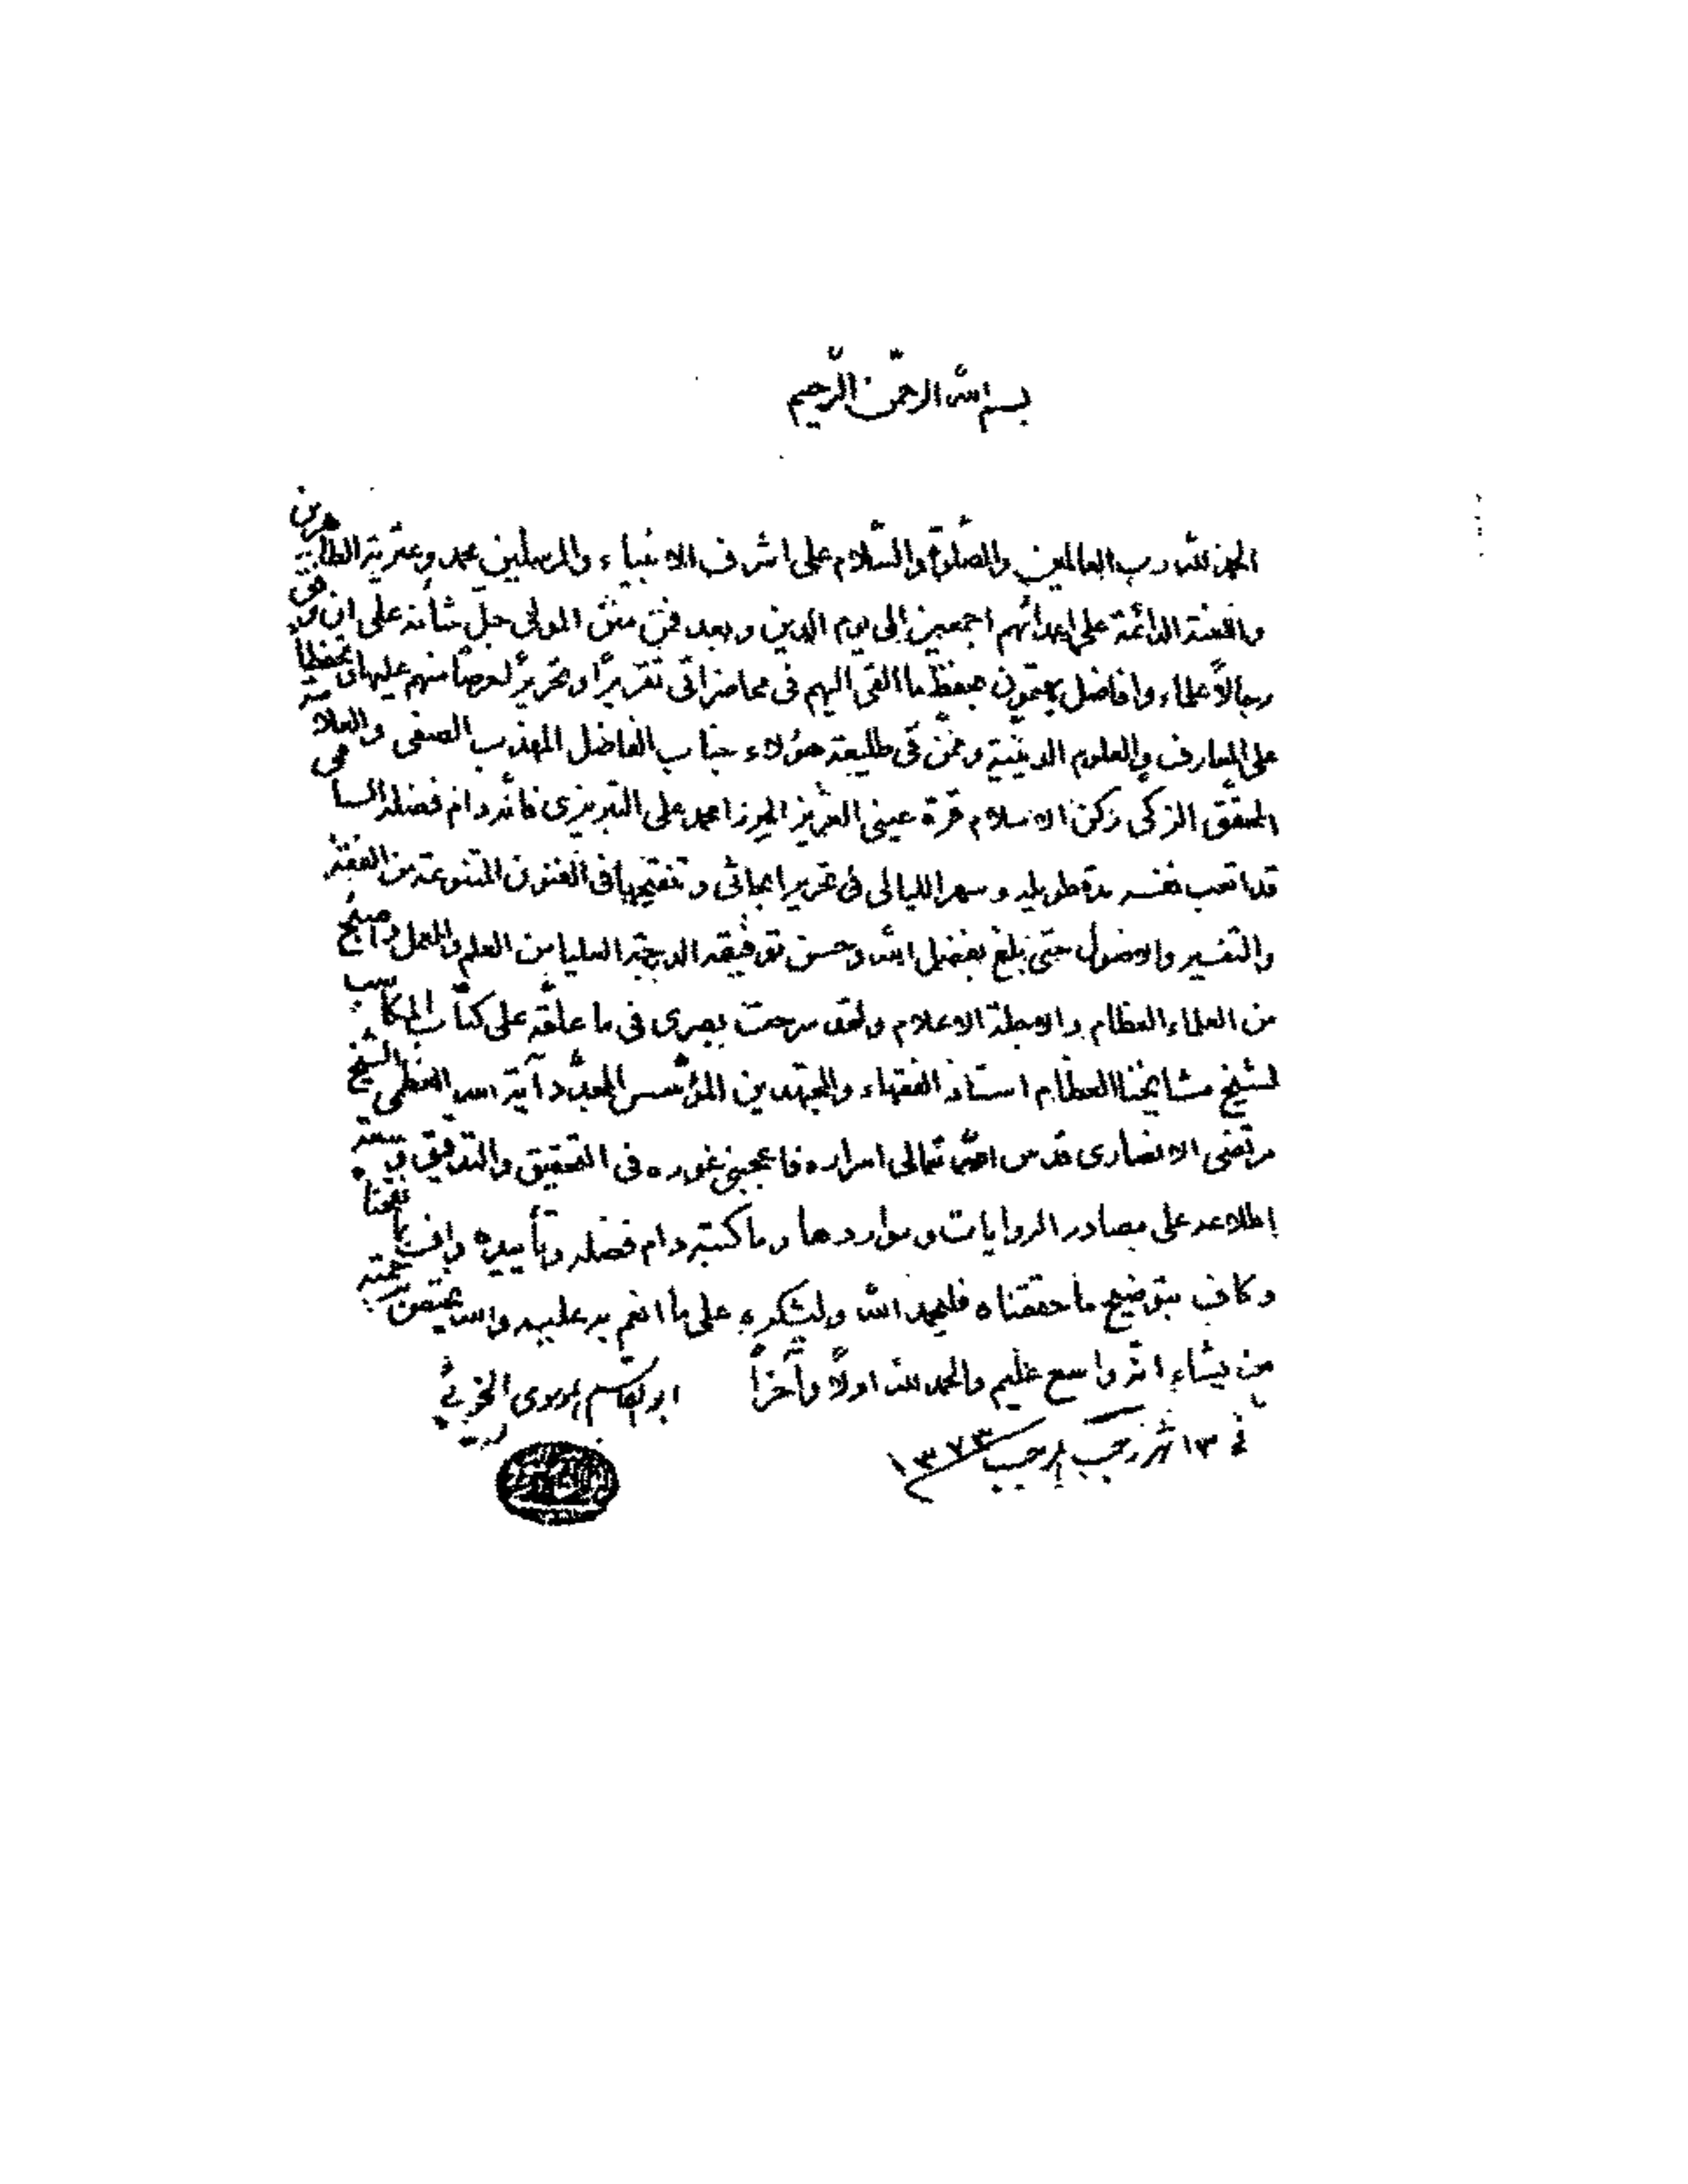 بسم الله الرحمن الرحيم
الحمد لله رب العالمين والصلوة والسّلام على اشرف الانبياء والمرسلين محمد وعترته الطاهرين
واللعنة الدائمة على اعدائهم اجمعين الى يوم الدين وبعد فمن منن المولى جلّ شأنه على ان وفق
رجالاً علماء وافاضل يهتمون بحفظ ما القى اليهم في محاضراتى تقريرًا وتحريرًا حرصًا منهم عليها وتحفظاً
على المعارف والعلوم الدينية وممّن في طليعة هؤلاء جناب الفاضل المهذب الصفى والعلامة
المحقق الزكى ركن الاسلام قرة عينى العزيز الميرزا محمد على التبريزى فانّه دام فضله السامى
قد اتعب نفسه مدة طويلة وسهر الليالى فى تحرير ابحاثى وتنقيحها فى الفنون المتنوعة من الفقه
والتفسير والاصول حتى بلغ بفضل الله وحسن توفيقه الدرجة العليا من العلم والعمل واصبح
من العلماء العظام والاجلة الاعلام ولقد سرحت بصرى فى ما علّقه على كتاب المكاسب
لشيخ مشايخنا العظام استاذ الفقهاء والمجتهدين المؤسس المجدّد آية الله العظمى الشيخ
مرتضى الانصارى قدس الله تعالى اسراره فاعجبنى غوره فى التحقيق والتدقيق وسعة
اطلاعه على مصادر الروايات ومواردها وما كتبه دام فضله وتأييده واف بما نقحناه
وكاف بتوضيح ما حققناه فليحمد الله وليشكره على ما انعم به عليه والله يختص برحمته
من يشاء انه واسع عليم والحمد لله اولًا وآخراً ابو القاسم الموسوى الخوئي
في ١٣ شهر رجب المرجب ١٣٧٣